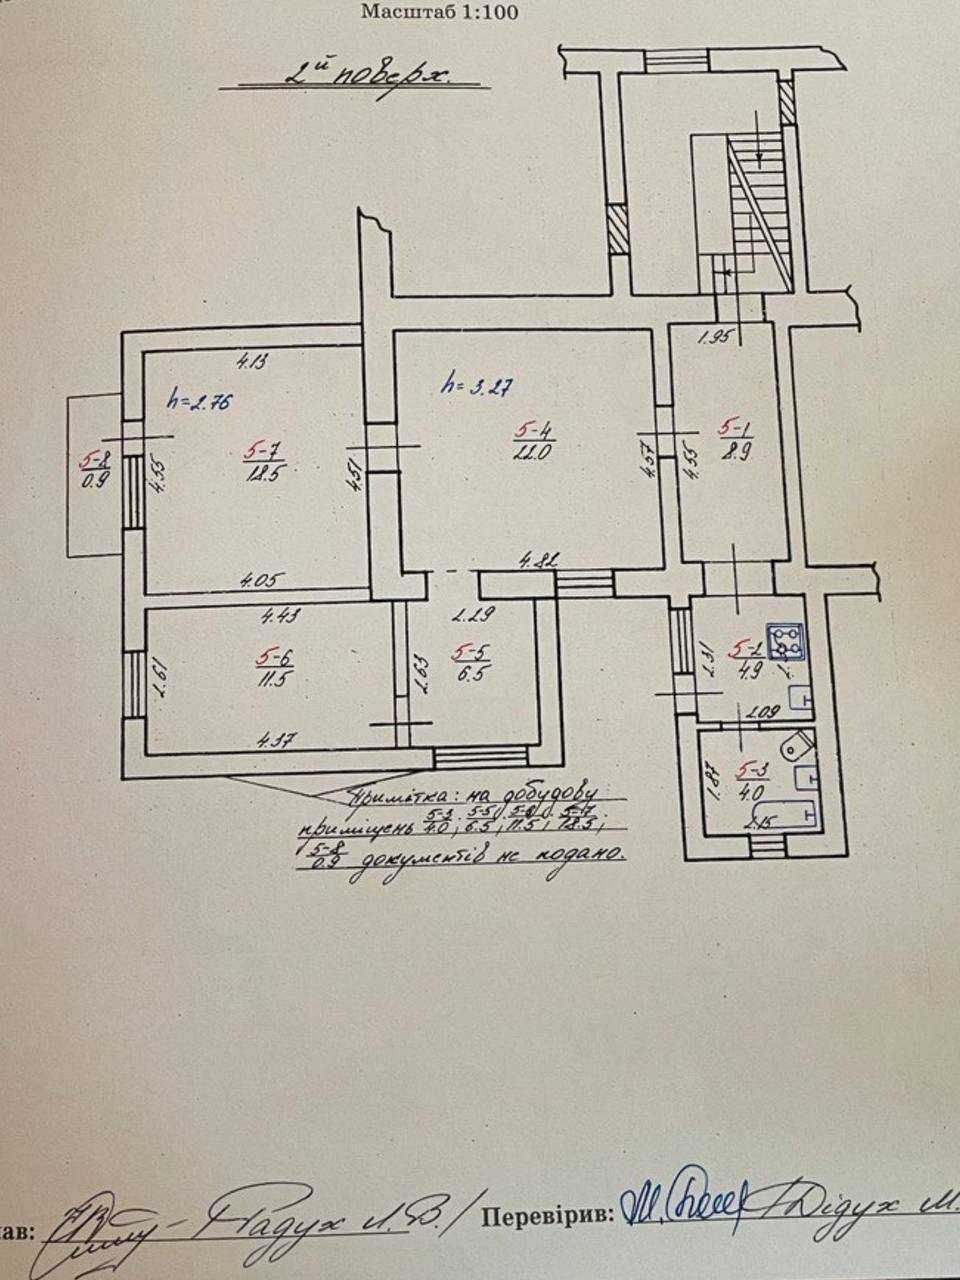 Масштаб 1:100
2й поверх.
1.95
4.13
h=2.76
h=3.27
5-8
0.9
4.55
5-7
18.5
4.51
5-4
22.0
4.57
4.55
5-1
8.9
4.05
4.82
4.43
2.29
2.61
5-6
11.5
2.63
5-5
6.5
2.31
5-2
4.9
2.09
4.37
1.87
5-3
4.0
2.15
Примітка: на добудову
приміщень 5-3/4.0; 5-5/6.5; 5-6/11.5; 5-7/18.5;
5-8/0.9 документів не подано.
ав: Радух Л.В./ Перевірив: Дідух М.